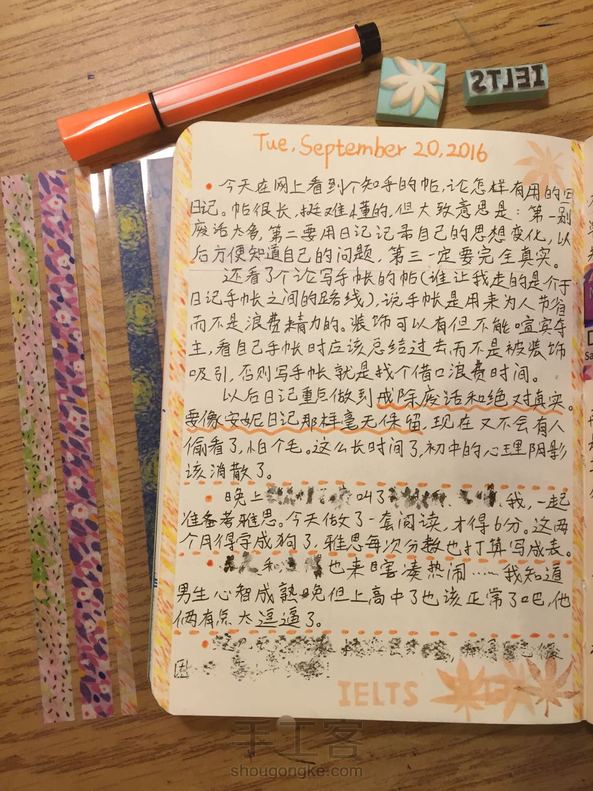 IELTS
Tue, September 20, 2016
今天在网上看到个知乎的帖,论怎样有用的写
日记。帖很长,挺难懂的,但大致意思是:第一别
废话太多,第二要用日记记录自己的思想变化,以
后方便知道自己的问题,第三一定要完全真实。
还看了个论写手帐的帖(谁让我走的是介于
日记手帐之间的路线),说手帐是用来为人节省
而不是浪费精力的。装饰可以有但不能喧宾夺
主,看自己手帐时应该总结过去而不是被装饰
吸引,否则写手帐就是找个借口浪费时间。
以后日记重点做到戒除废话和绝对真实。
要像安妮日记那样毫无保留,现在又不会有人
偷看了,怕个毛。这么长时间了,初中的心理阴影
该消散了。
晚上 叫了 我,一起
准备考雅思。今天做了一套阅读,才得6分。这两
个月得学成狗了,雅思每次分数也打算写成表。
和 也来瞎凑热闹……我知道
男生心智成熟晚但上高中了也该正常了吧,他
俩有点太逗逼了。
IELTS
手工客
shougongke.com